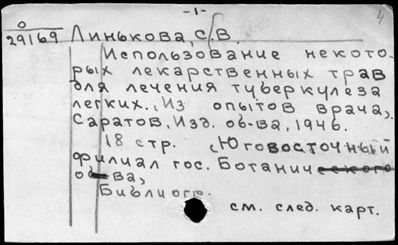 -1-
4
0
29169 Линькова, С.В
Использование некото-
рых лекарственных трав
для лечения туберкулеза
легких. (Из опытов врача).
Саратов, Изд. об-ва, 1946.
18 стр. (Юговосточный
филиал гос. Ботанического
об-ва,
Библиогр.
см. след. карт.